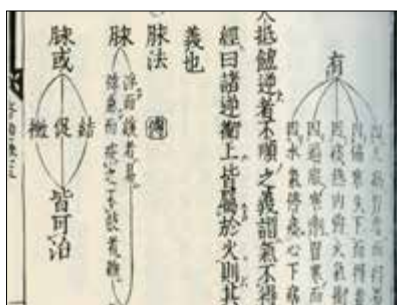 有
因傷寒失下而得者
因痰熱內鬱火氣衝
因過服寒劑胃寒而
因水氣停痰心下痞
逆者不順之義謂氣不得
經曰諸逆衝上皆屬於火則其
義也
脉法
脉
浮而緩者易
弦急而按之不鼓者難
脉或
結
促
微
皆可治